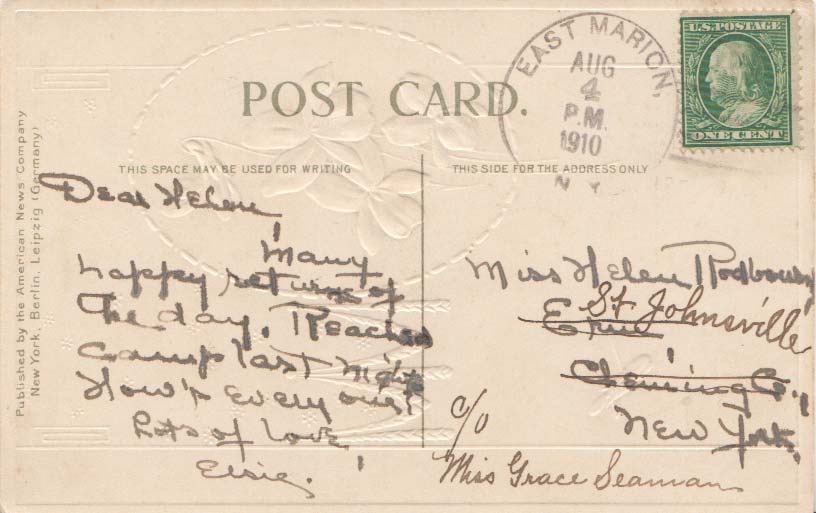 POST CARD.
THIS SPACE MAY BE USED FOR WRITING
THIS SIDE FOR THE ADDRESS ONLY
Published by the American News Company
New York, Berlin, Leipzig (Germany)
EAST MARION,
AUG
4
P.M.
1910
N.Y.
U.S. POSTAGE
ONE CENT
Dear Helen,
Many
happy returns of
the day. Reached
Camp last night
How's every one?
Lots of love
Elsie.
Miss Helen
Erin
St Johnsville
Chemung Co.,
New York.
c/o
Miss Grace Seaman